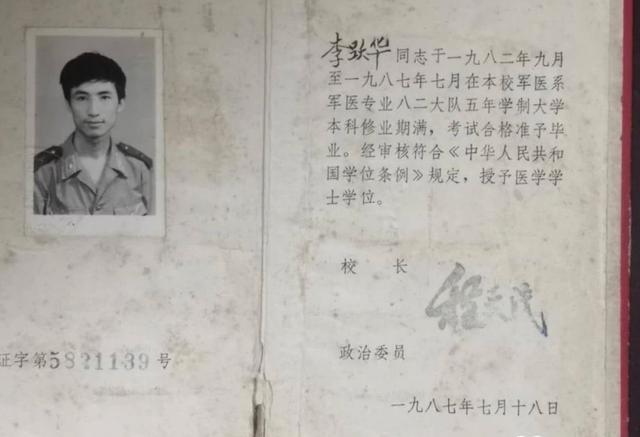 李跃华同志于一九八二年九月
至一九八七年七月在本校军医系
军医专业八二大队五年学制大学
本科修业期满，考试合格准予毕
业。经审核符合《中华人民共和
国学位条例》规定，授予医学学
士学位。
校 长
程天民
政治委员
证字第5821139号
一九八七年七月十八日